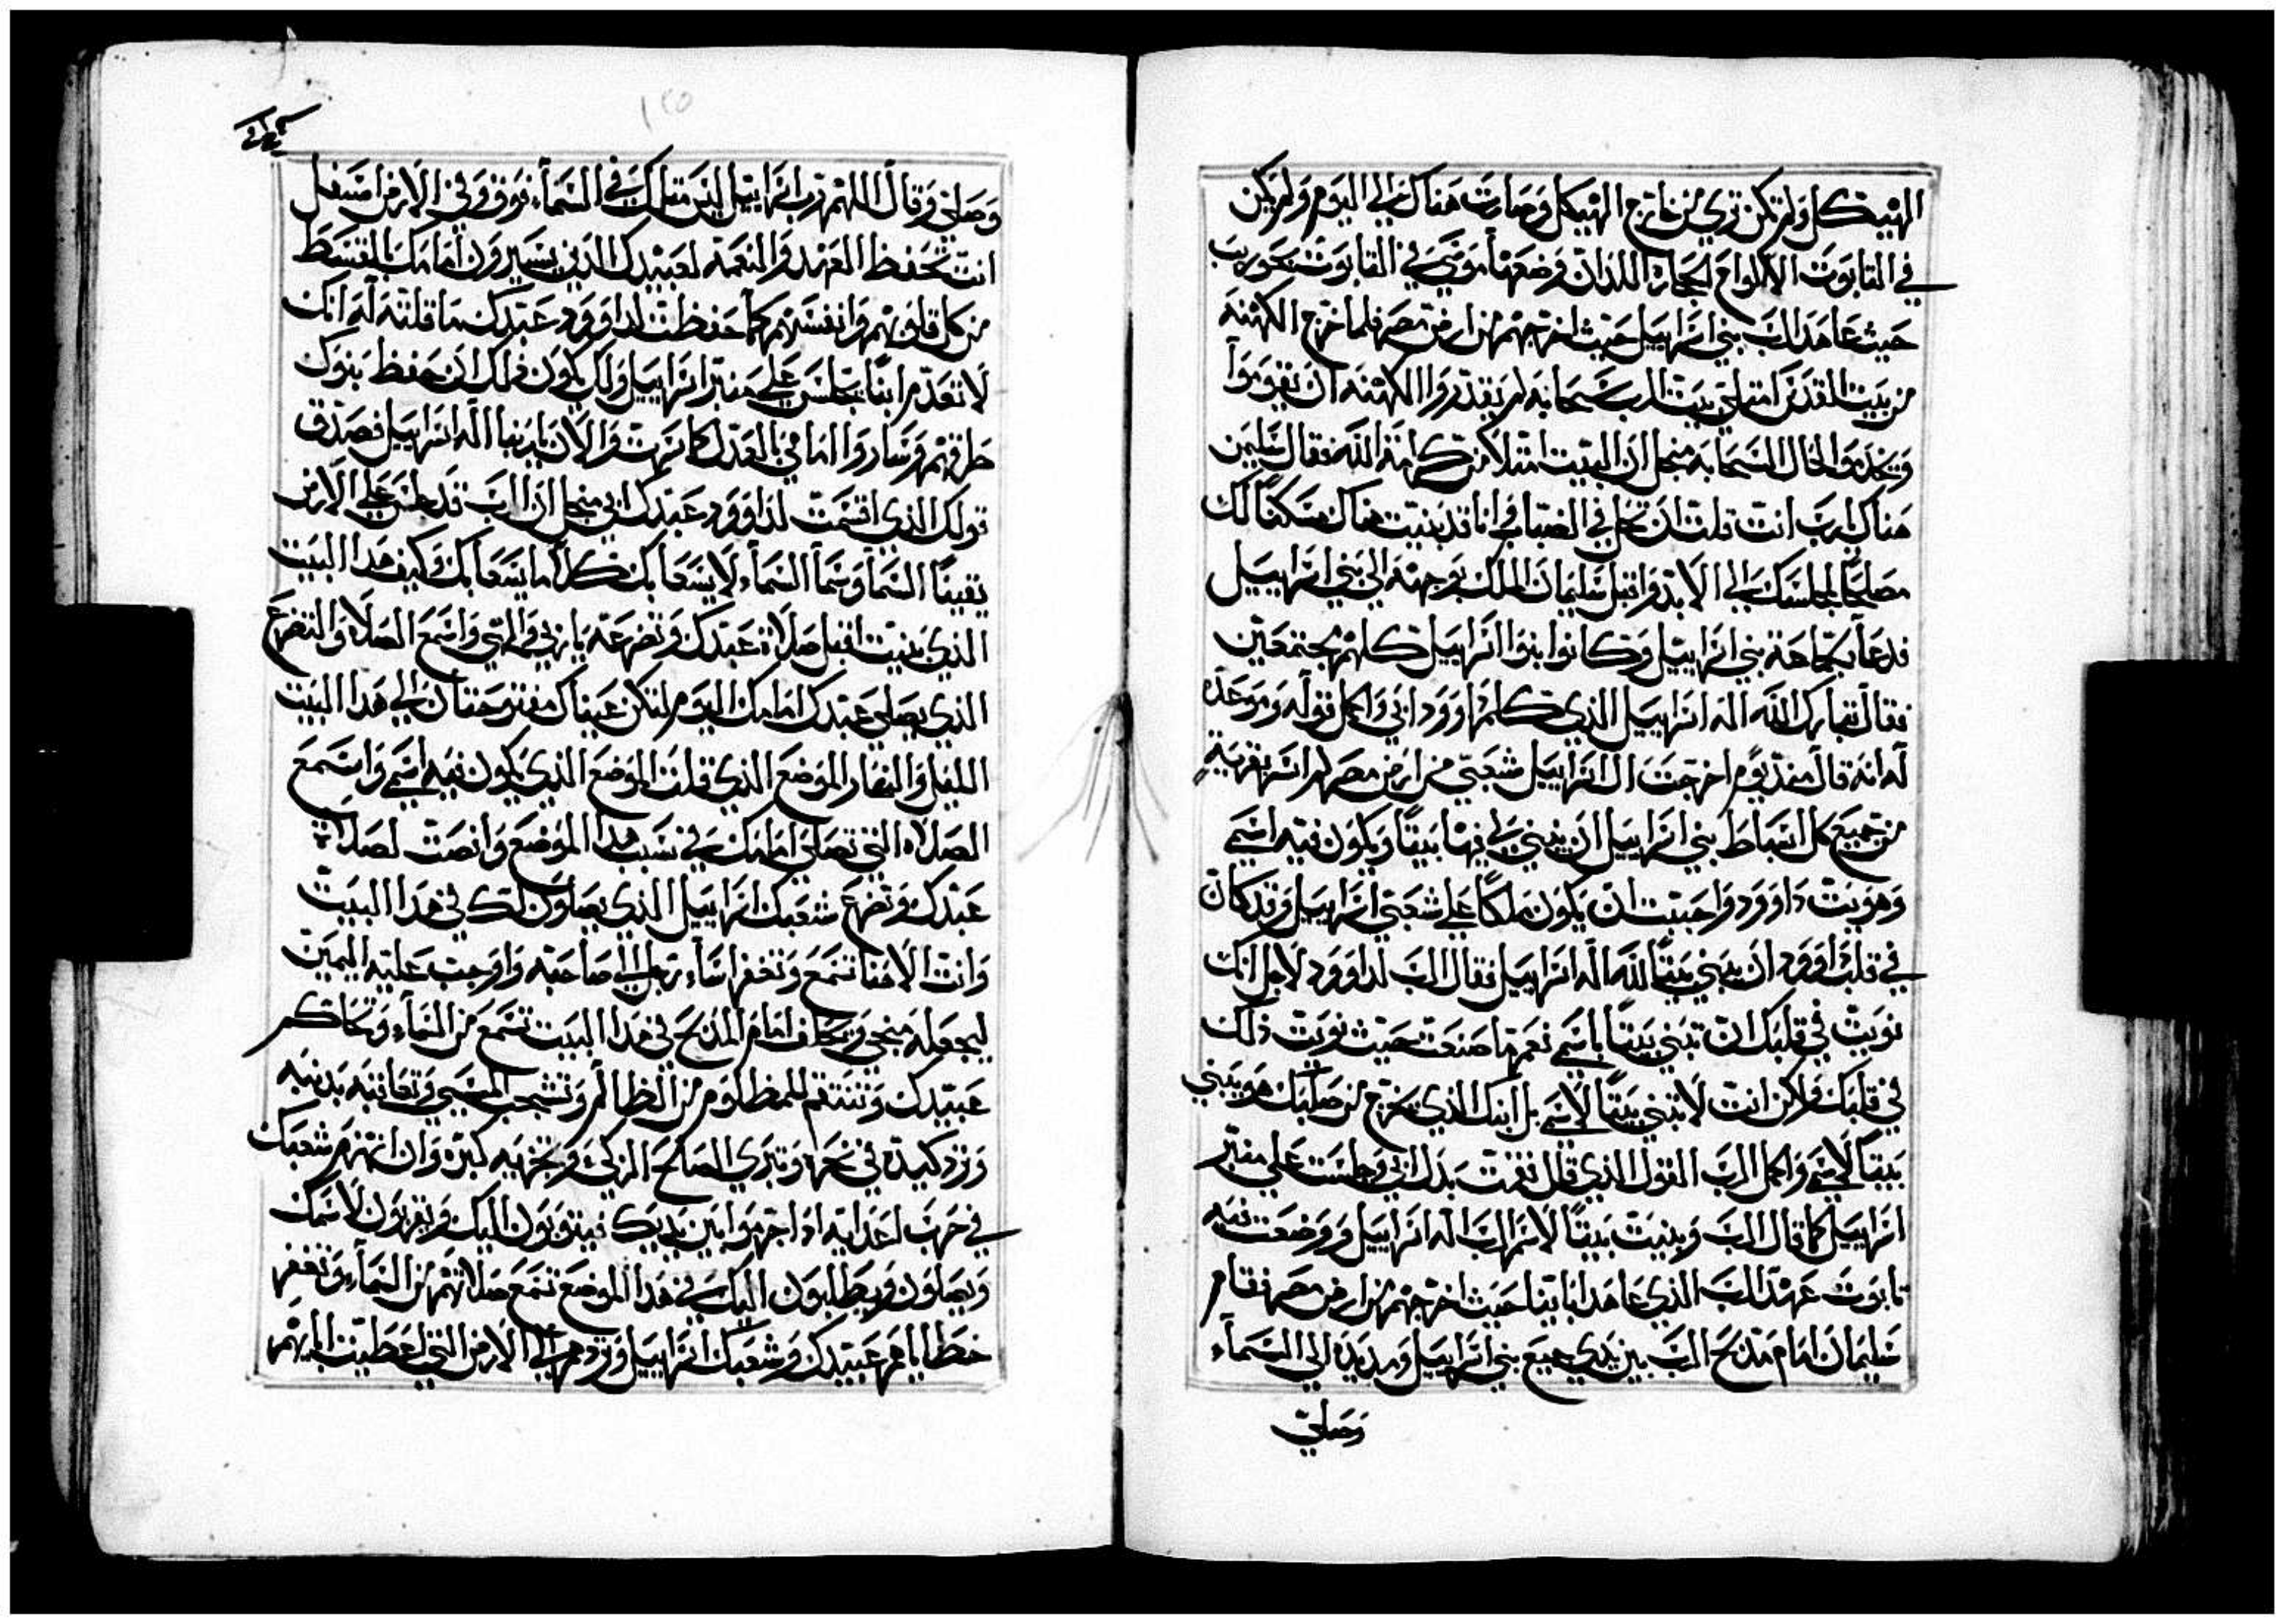 الهيكل ولم تكن تري من خارج الهيكل وصارت هناك الي اليوم ولم يكن
في التابوت الا الواح الحجاره اللذان وضعهما موسي في التابوت بحوريب
حيث عاهد الرب بني اسراييل حيث اخرجهم من ارض مصر فلما خرج الكهنه
من بيت القدس امتلي بيت الرب سحابه لم يقدروا الكهنه ان يقوموا
ويخدموا لحال السحابه منجل ان البيت امتلا من كرامة الله فقال سليمن
هناك يارب انت قلت ان تحل في الضباب انا قد بنيت هناك مسكنا لك
مصلحا لمجلسك الي الابد واقبل سليمان الملك بوجهه الي بني اسراييل
فدعا بجماعة بني اسراييل وكانوا بنوا اسراييل كلهم مجتمعين
فقال تبارك الله اله اسراييل الذي كلم داوود ابي واكمل قوله وموعده
له انه قال منذ يوم اخرجت ال اسراييل شعبي من ارض مصر لم اسر بقريه
من جميع كل اسباط بني اسراييل ان يبني لي فيها بيتا ويكون فيه اسمي
وهويت داوود واحببت ان يكون ملكا علي شعبي اسراييل وقد كان
في قلب داوود ان يبني بيتا لله اله اسراييل فقال الرب لداوود لاجل انك
نويت في قلبك ان تبني بيتا باسمي نعم ما صنعت حيث نويت ذلك
في قلبك ولاكن انت لا تبني بيتا لاسمي بل ابنك الذي يخرج من صلبك هو يبني
بيتا لاسمي واكمل الرب القول الذي قال فقمت بدل ابي وجلست علي منبر
اسراييل كما قال الرب وبنيت بيتا لاسم الرب اله اسراييل ووضعت فيه
تابوت عهد الرب الذي عاهد اباينا حيث اخرجهم من ارض مصر فقام
سليمان امام مذبح الرب بين يدي جميع بني اسراييل ومد يده الي السماء
وصلي
وصلي وقال اللهم رب اسراييل ليس مثلك في السماء فوق وفي الارض اسفل
انت تحفظ العهد والنعمه لعبيدك الذين يسيرون امامك بالقسط
من كل قلوبهم وانفسهم كما حفظت لداوود عبدك ما قلته له انك
لا تعدم ابنا يجلس علي منبر اسراييل ولكن يكون ذلك ان حفظ بنوك
طرقهم وساروا امامي بالعدل كما سرت والان يا ربنا اله اسراييل فصدق
قولك الذي اقسمت لداوود عبدك ابي منجل ان الرب قد جلس علي الارض
يقينا السما وسما السماء لا يسعا بك كلا ما يسعا بك وكيف هدا البيت
الذي بنيت اقبل صلاة عبدك وتضرعه يا ربي والهي واسمع الصلاه والتضرع
الذي يصلي عبدك امامك اليوم لتكن عيناك مفتوحتان الي هدا البيت
الليل والنهار الموضع الذي قلت الموضع الذي يكون فيه اسمي واسمع
الصلاه التي تصلي امامك في نسب هدا الموضع وانصت لصلاة
عبدك وتضرع شعبك اسراييل الذي يصلون لك في هدا البيت
وانت الاهنا تسمع وتغفر اساء رجل الي صاحبه واوجب عليه اليمين
ليجعله منجي ويحلف امام المذبح في هدا البيت تسمع من السماء وتحاكم
عبيدك وتنتقم للمظلوم من الظالم وتشجب المسيي وتعاقبه بدنبه
وترد كيده في نحره وتبري الصالح الزكي وتجزيه كبره وان انهزم شعبك
في حرب اعدايه ادا اجرموا بين يديك فيتوبون اليك ويقربون لاسمك
ويصلون ويطلبون اليك في هدا الموضع تسمع صلاتهم من السماء وتغفر
خطاياهم عبيدك وشعبك اسراييل وتردهم الي الارض التي اعطيت ابايهم